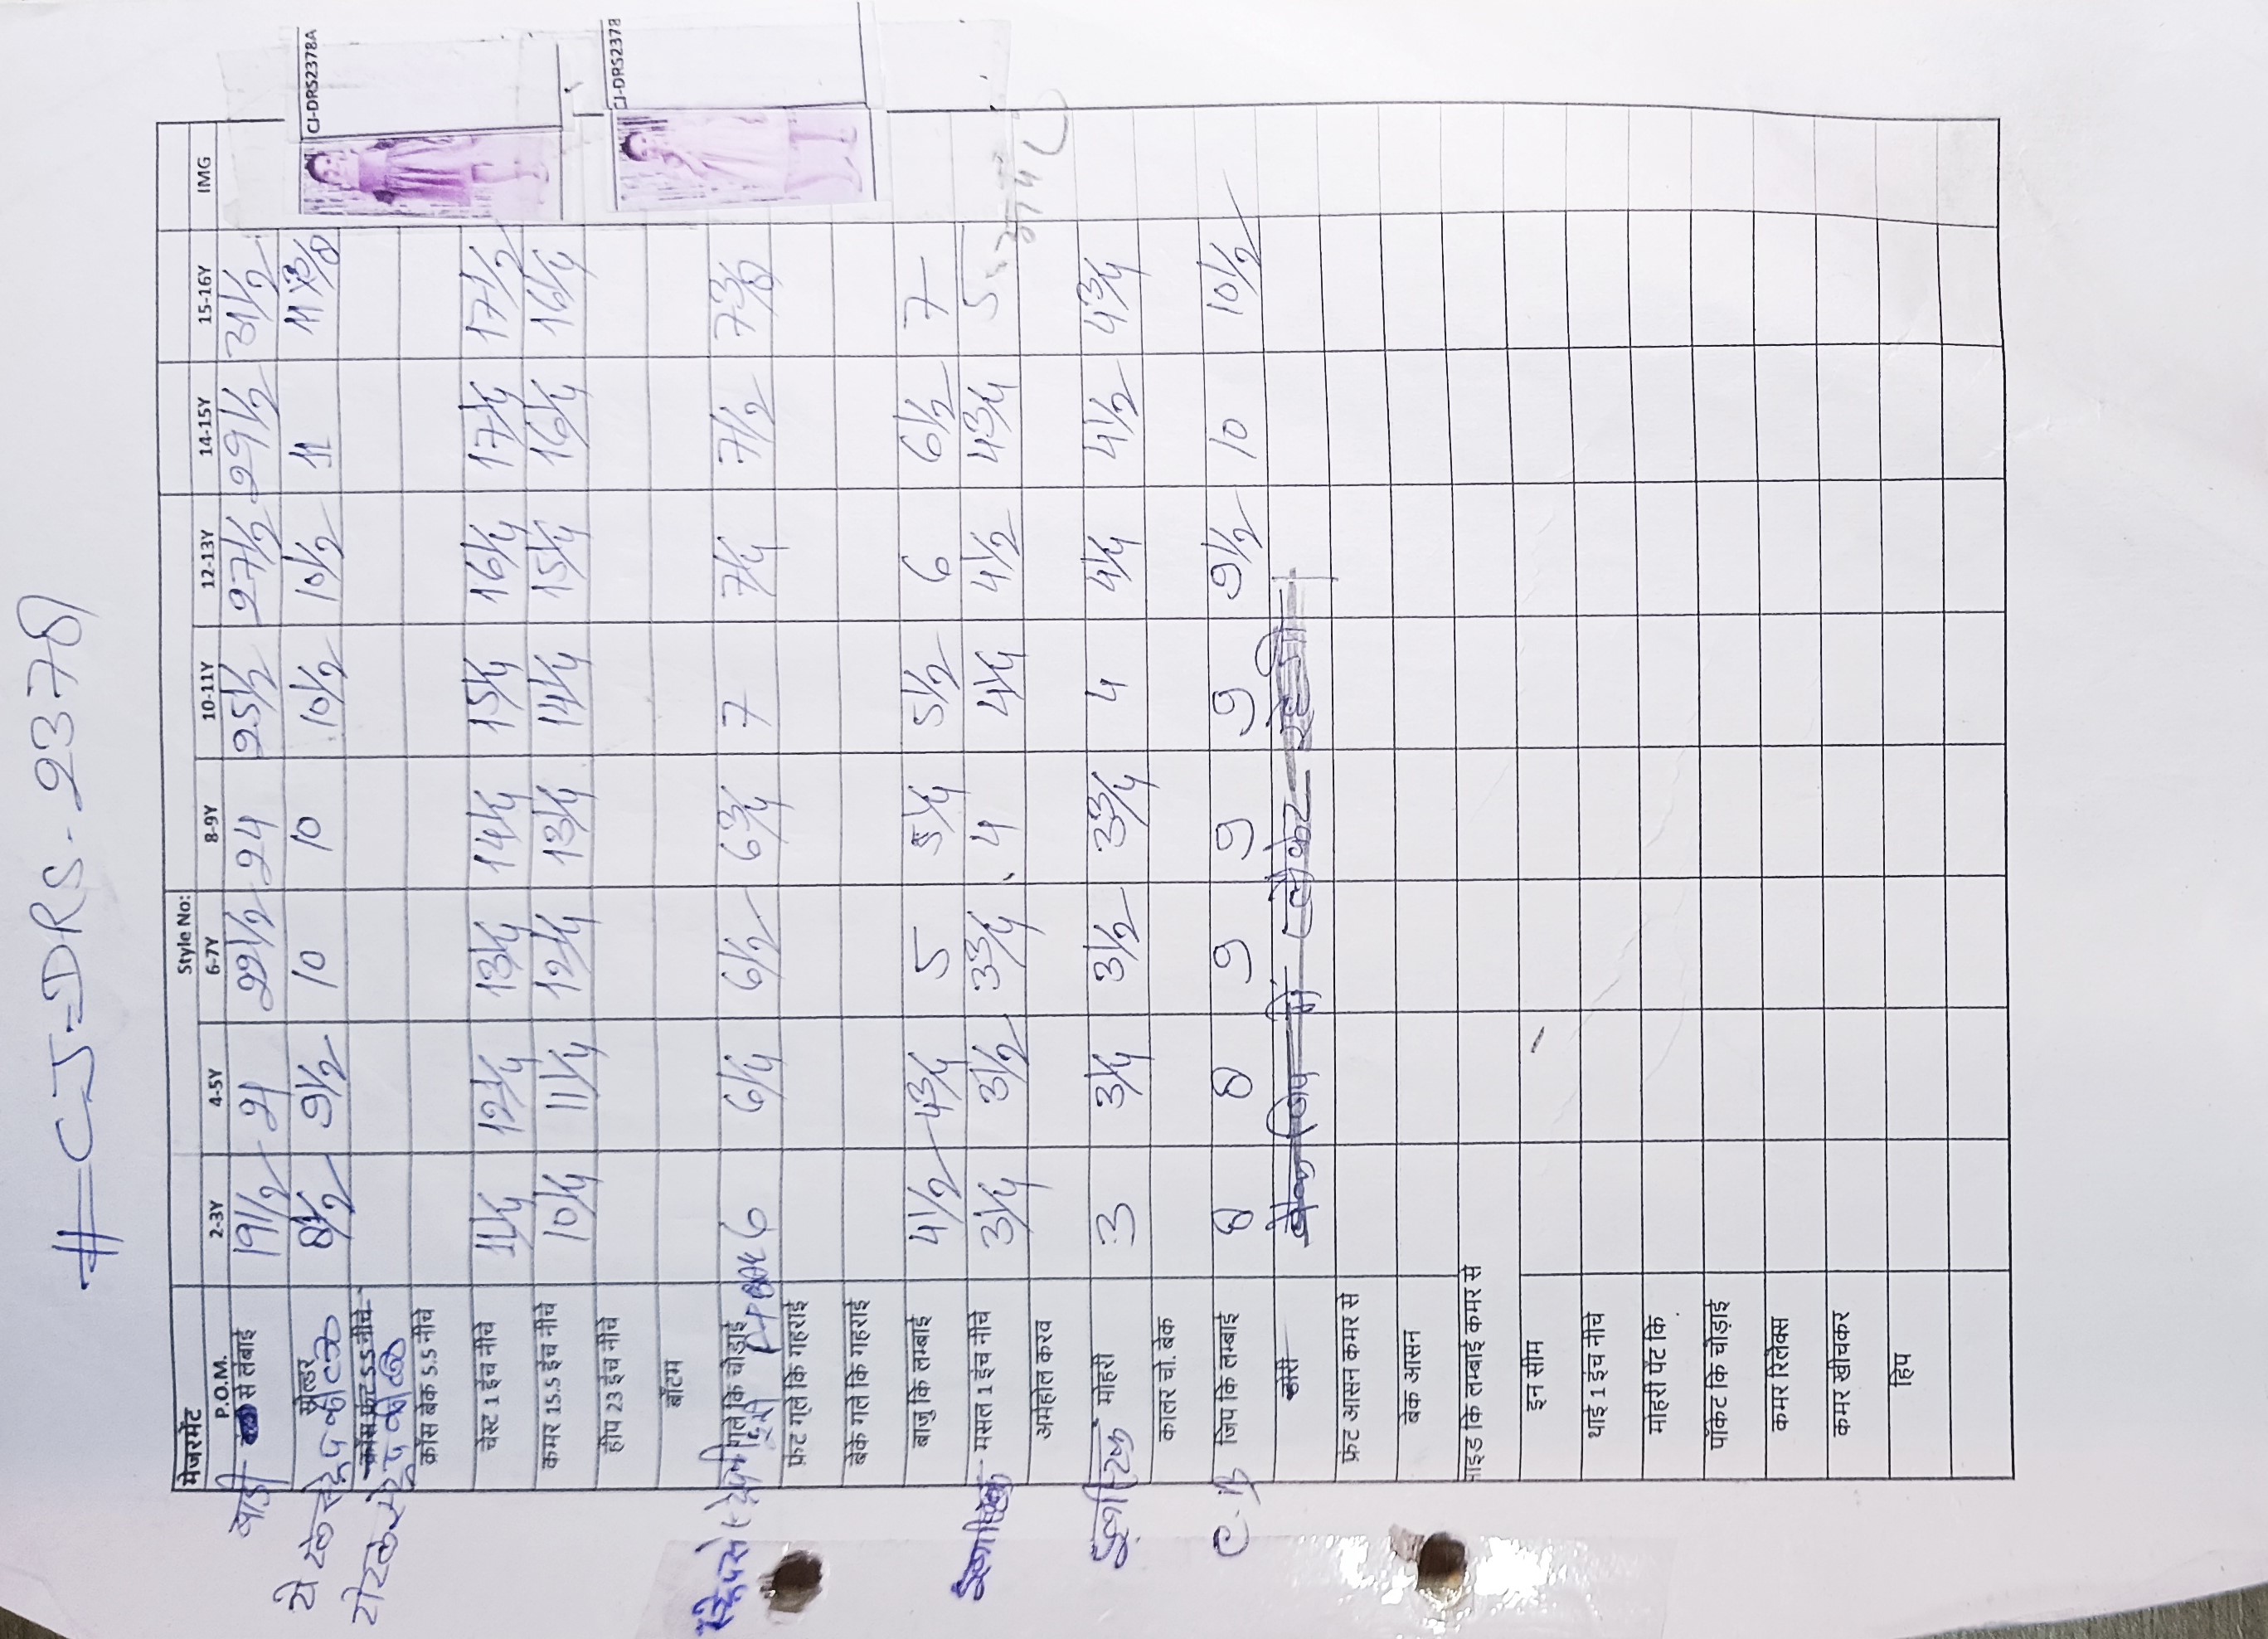 #=CJ=DRS-2378
CJ-DRS2378A
CJ-DRS2378
मेजरमेंट Style No:
P.O.M. 2-3Y 4-5Y 6-7Y 8-9Y 10-11Y 12-13Y 14-15Y 15-16Y IMG
बाडी से लंबाई 19 1/2 21 22 1/2 24 25 1/2 27 1/2 29 1/2 31 1/2
शोल्डर 8 1/2 9 1/2 10 10 10 1/2 10 1/2 11 11
क्रॉस फ्रंट 5.5 नीचे
क्रॉस बेक 5.5 नीचे
चेस्ट 1 इंच नीचे 11 1/4 12 1/4 13 1/4 14 1/4 15 1/4 16 1/4 17 1/4 17 1/2
कमर 15.5 इंच नीचे 10 1/4 11 1/4 12 1/4 13 1/4 14 1/4 15 1/4 16 1/4 16 1/4
हीप 23 इंच नीचे
बॉटम
गले कि चौड़ाई 6 6 1/4 6 1/2 6 3/4 7 7 1/4 7 1/2 7 3/8
फ्रंट गले कि गहराई
बेक गले कि गहराई
बाजु कि लम्बाई 4 1/2 4 3/4 5 5 1/4 5 1/2 6 6 1/2 7
मसल 1 इंच नीचे 3 1/4 3 1/2 3 3/4 4 4 1/4 4 1/2 4 3/4 5
अमेहोल करव
मोहरी 3 3 1/4 3 1/2 3 3/4 4 4 1/4 4 1/2 4 3/4
कालर चो. बेक
C.B जिप कि लम्बाई 8 8 9 9 9 9 1/2 10 10 1/2
डोरी
फ्रंट आसन कमर से
बेक आसन
साइड कि लम्बाई कमर से
इन सीम
थाई 1 इंच नीचे
मोहरी पेंट कि
पॉकेट कि चोड़ाई
कमर रिलेक्स
कमर खीचकर
हिप